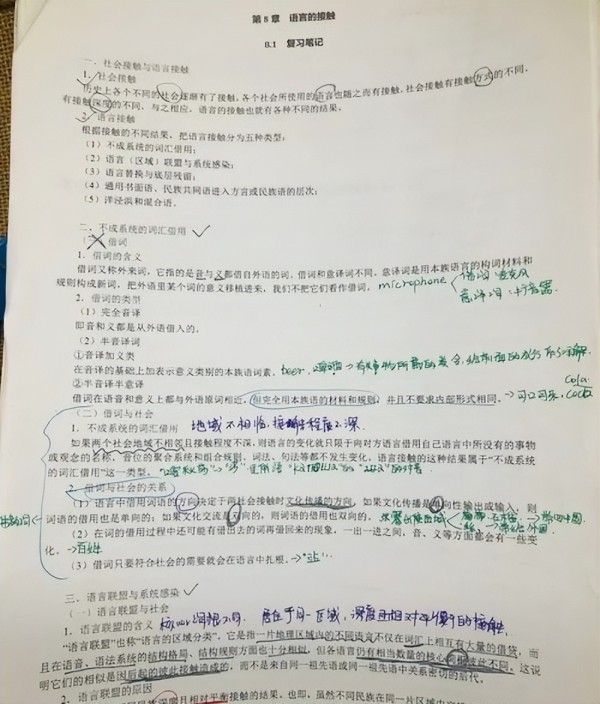 第 8 章 语言的接触
8.1 复习笔记
一、社会接触与语言接触
1. 社会接触
历史上各个不同的社会逐渐有了接触,各个社会所使用的语言也随之而有接触,社会接触有接触方式的不同,
有接触深度的不同,与之相应,语言的接触也就有各种不同的结果。
2. 语言接触
根据接触的不同结果,把语言接触分为五种类型:
(1)不成系统的词汇借用;
(2)语言(区域)联盟与系统感染;
(3)语言替换与底层残留;
(4)通用书面语、民族共同语进入方言或民族语的层次;
(5)洋泾浜和混合语。
二、不成系统的词汇借用
(一)借词
1. 借词的含义
借词又称外来词,它指的是音与义都借自外语的词。借词和意译词不同,意译词是用本族语言的构词材料和
规则构成新词,把外语里某个词的意义移植进来,我们不把它们看作借词。 microphone 借词:麦克风
意译词:扩音器
2. 借词的类型
(1)完全音译
即音和义都是从外语借入的。
(2)半音译词
①音译加义类
在音译的基础上加表示意义类别的本族语词素, beer,啤酒
②半音译半意译
借词在语音和意义上都与外语原词相近,但完全用本族的材料和规则,并且不要求内部形式相同。→可口可乐,coca cola
(二)借词与社会
1. 不成系统的词汇借用 地域不相临,接触程度不深
如果两个社会地域不相邻且接触程度不深,则语言的变化就只限于向对方语言借用自己语言中所没有的事物
或观念的名称,音位的聚合系统和组合规则、词法、句法等都不发生变化,语言接触的这种结果属于“不成系统
的词汇借用”这一类型。
2. 借词与社会的关系
(1)语言中借用词语的方向决定于两社会接触时文化传播的方向。如果文化传播是单向性输出或输入,则
词语的借用也是单向的;如果文化交流是双向的,则词语的借用也双向的。
(2)在词的借用过程中还可能有借出去的词再借回来的现象,一出一进之间,音、义等方面都会有一些变
化。
(3)借词只要符合社会的需要就会在语言中扎根。→“站”
三、语言联盟与系统感染
(一)语言联盟与社会
1. 语言联盟的含义 核心词根不同,居住于同一区域,
“语言联盟”也称“语言的区域分类”,它是指一片地理区域内的不同语言不仅在词汇上相互有大量的借贷,而
且在语音、语法系统的结构格局、结构规则方面也十分相似,但各语言仍有相当数量的核心词根彼此不同,这说
明它们的相似是因后起的彼此接触造成的,而不是来自同一祖先语或同一祖先语中关系密切的后代。
2. 语言联盟的原因
深度且相对平衡接触的结果,也即,虽然不同民族在同一片区域